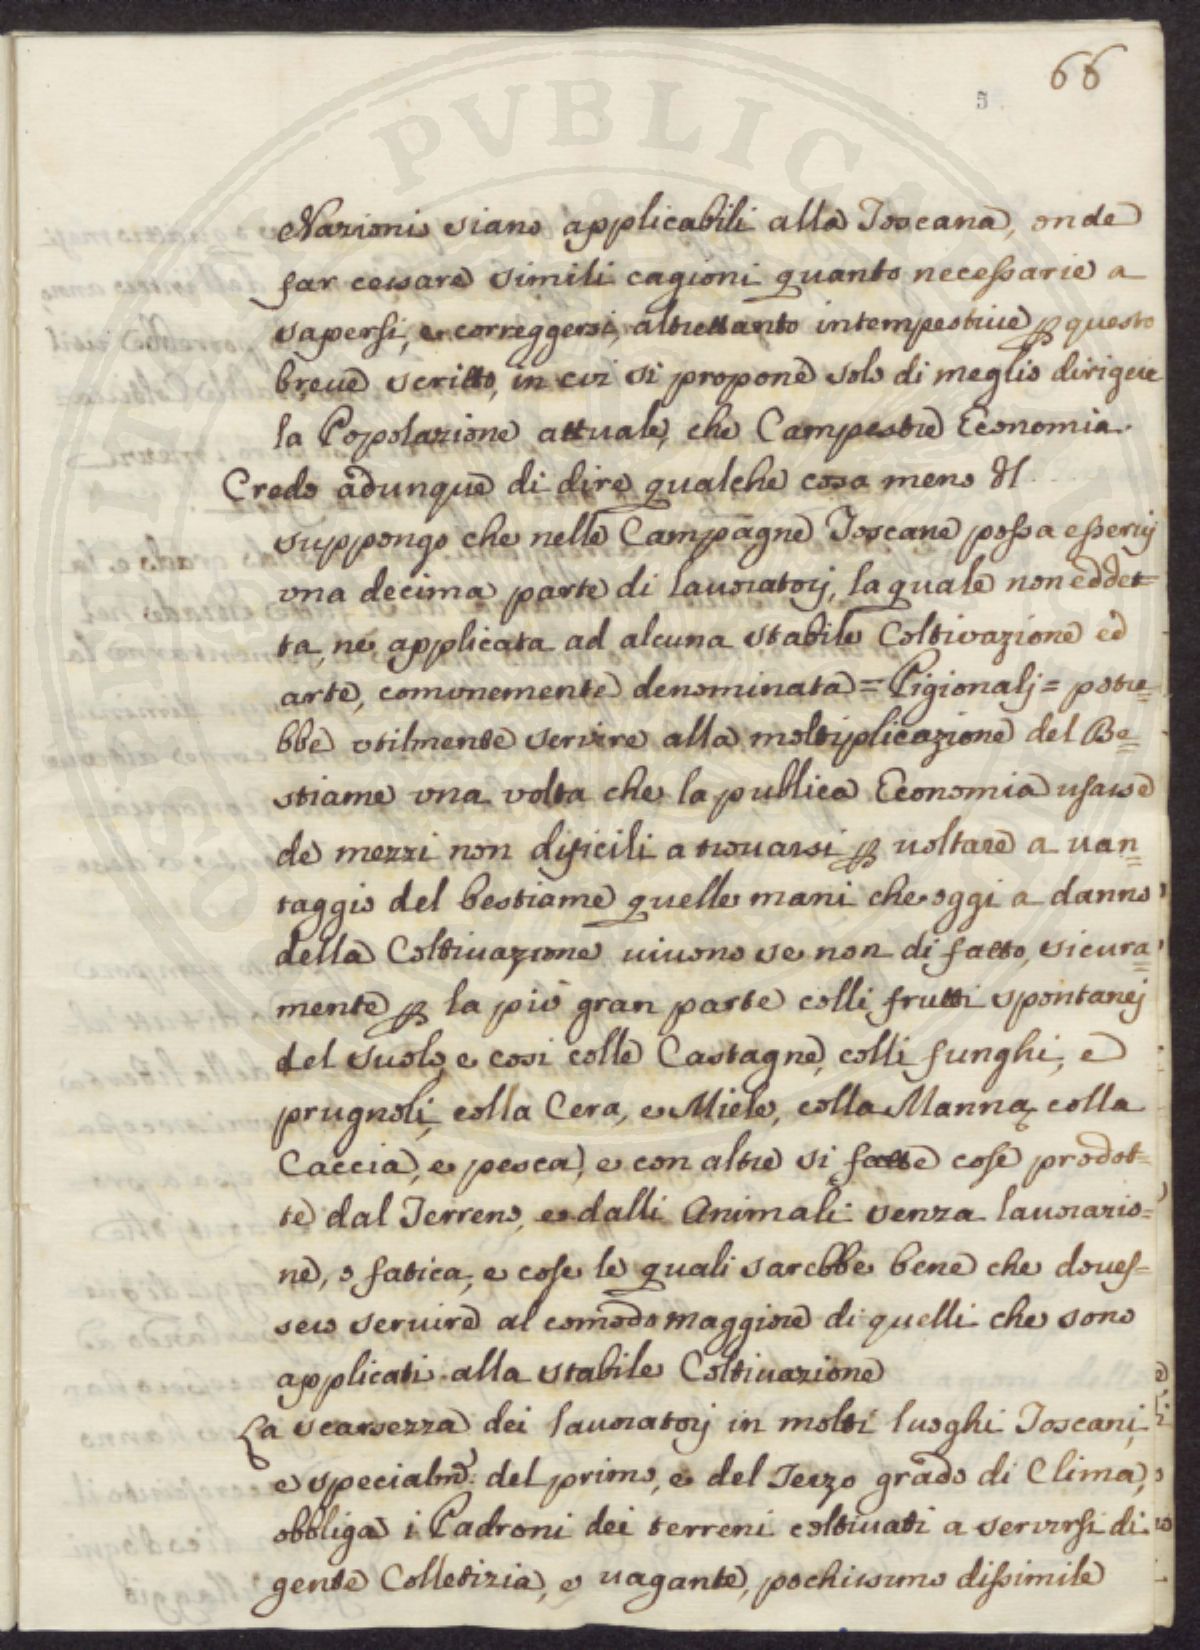 66
5
Nazioni siano applicabili alla Toscana, onde
far cessare simili cagioni quanto necessarie a
sapersi, e correggersi, altrettanto intempestive p questo
breve scritto, in cui si propone solo di meglio dirigere
la Popolazione attuale, che Campestre Economia.
Credo adunque di dire qualche cosa meno
suppongo che nelle Campagne Toscane possa esservj
una decima parte di lavoratorj, la quale non eddet=
ta, ne applicata ad alcuna stabile Coltivazione ed
arte, comunemente denominata = Pigionalj = potre=
bbe utilmente servire alla moltiplicazione del Be=
stiame una volta che la publica Economia usasse
de mezzi non dificili a trovarsi p voltare a van=
taggio del bestiame quelle mani che oggi a danno
della Coltivazione vivono se non di fatto, sicura=
mente p la più gran parte colli frutti spontanej
del suolo, e cosi colle Castagne, colli funghi, e
prugnoli, colla Cera, e Miele, colla Manna, colla
Caccia, e pesca, e con altre si fatte cose prodot=
te dal Terreno, e dalli Animali senza lavorazio=
ne, o fatica, e cose le quali sarebbe bene che doves=
sero servire al comodo maggiore di quelli che sono
applicati alla stabile Coltivazione
La scarsezza dei lavoratorj in molti luoghi Toscani,
e specialmᵉ. del primo, e del Terzo grado di Clima,
obbliga i Padroni dei terreni coltivati a servirsi di
gente Colletizia, e vagante, pochissimo dissimile
PVBLICA